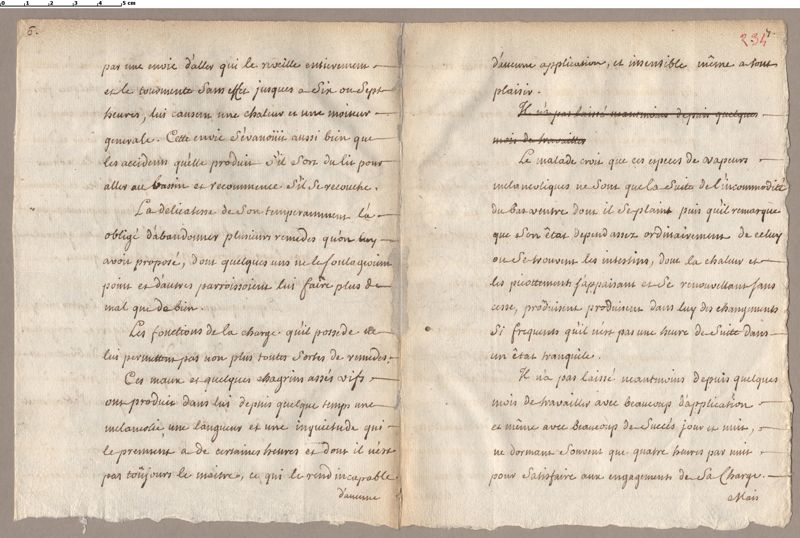 6.
par une envie d'aller qui le reveille entierement
et le tourmente sans effet jusques a six ou sept
heures, lui causent une chaleur et une moiteur
generale. Cette envie s'évanoüit aussi bien que
les accidents qu'elle produit s'il sort du lit pour
aller au bassin et recommence s'il se recouche.
La delicatesse de son temperamment l'a
obligé d'abandonner plusieurs remedes qu'on luy
avoit proposé, dont quelques uns ne le soulageoient
point et d'autres parroissoient lui faire plus de
mal que de bien.
Les fonctions de la charge qu'il possede ne
lui permettent pas non plus toutes sortes de remedes.
Ces maux et quelques chagrins assés vifs
ont produit dans lui depuis quelque temps une
melancolie, une langueur et une inquietude qui
le prennent a de certaines heures et dont il n'est
pas toûjours le maitre, ce qui le rend incapable
d'aucune
234
7.
d'aucune application, et insensible même a tout
plaisir.
Il n'a pas laissé neantmoins depuis quelques
mois de travailler
Le malade croit que ces especes de vapeurs
melancoliques ne sont que la suite de l'incommodité
du bas ventre dont il se plaint puis qu'il remarque
que son êtat depend assez ordinairement de celuy
ou se trouvent les intestins, dont la chaleur et
les picottements s'appaisant et se renouvellant sans
cesse, produisent produisent dans luy des changements
si frequents qu'il n'est pas une heure de suite dans
un êtat tranquile.
Il n'a pas laissé neantmoins depuis quelques
mois de travailler avec beaucoup d'application
et même avec beaucoup de succès jour et nuit,
ne dormant souvent que quatre heures par nuit
pour satisfaire aux engagements de sa charge.
Mais
0 1 2 3 4 5 cm